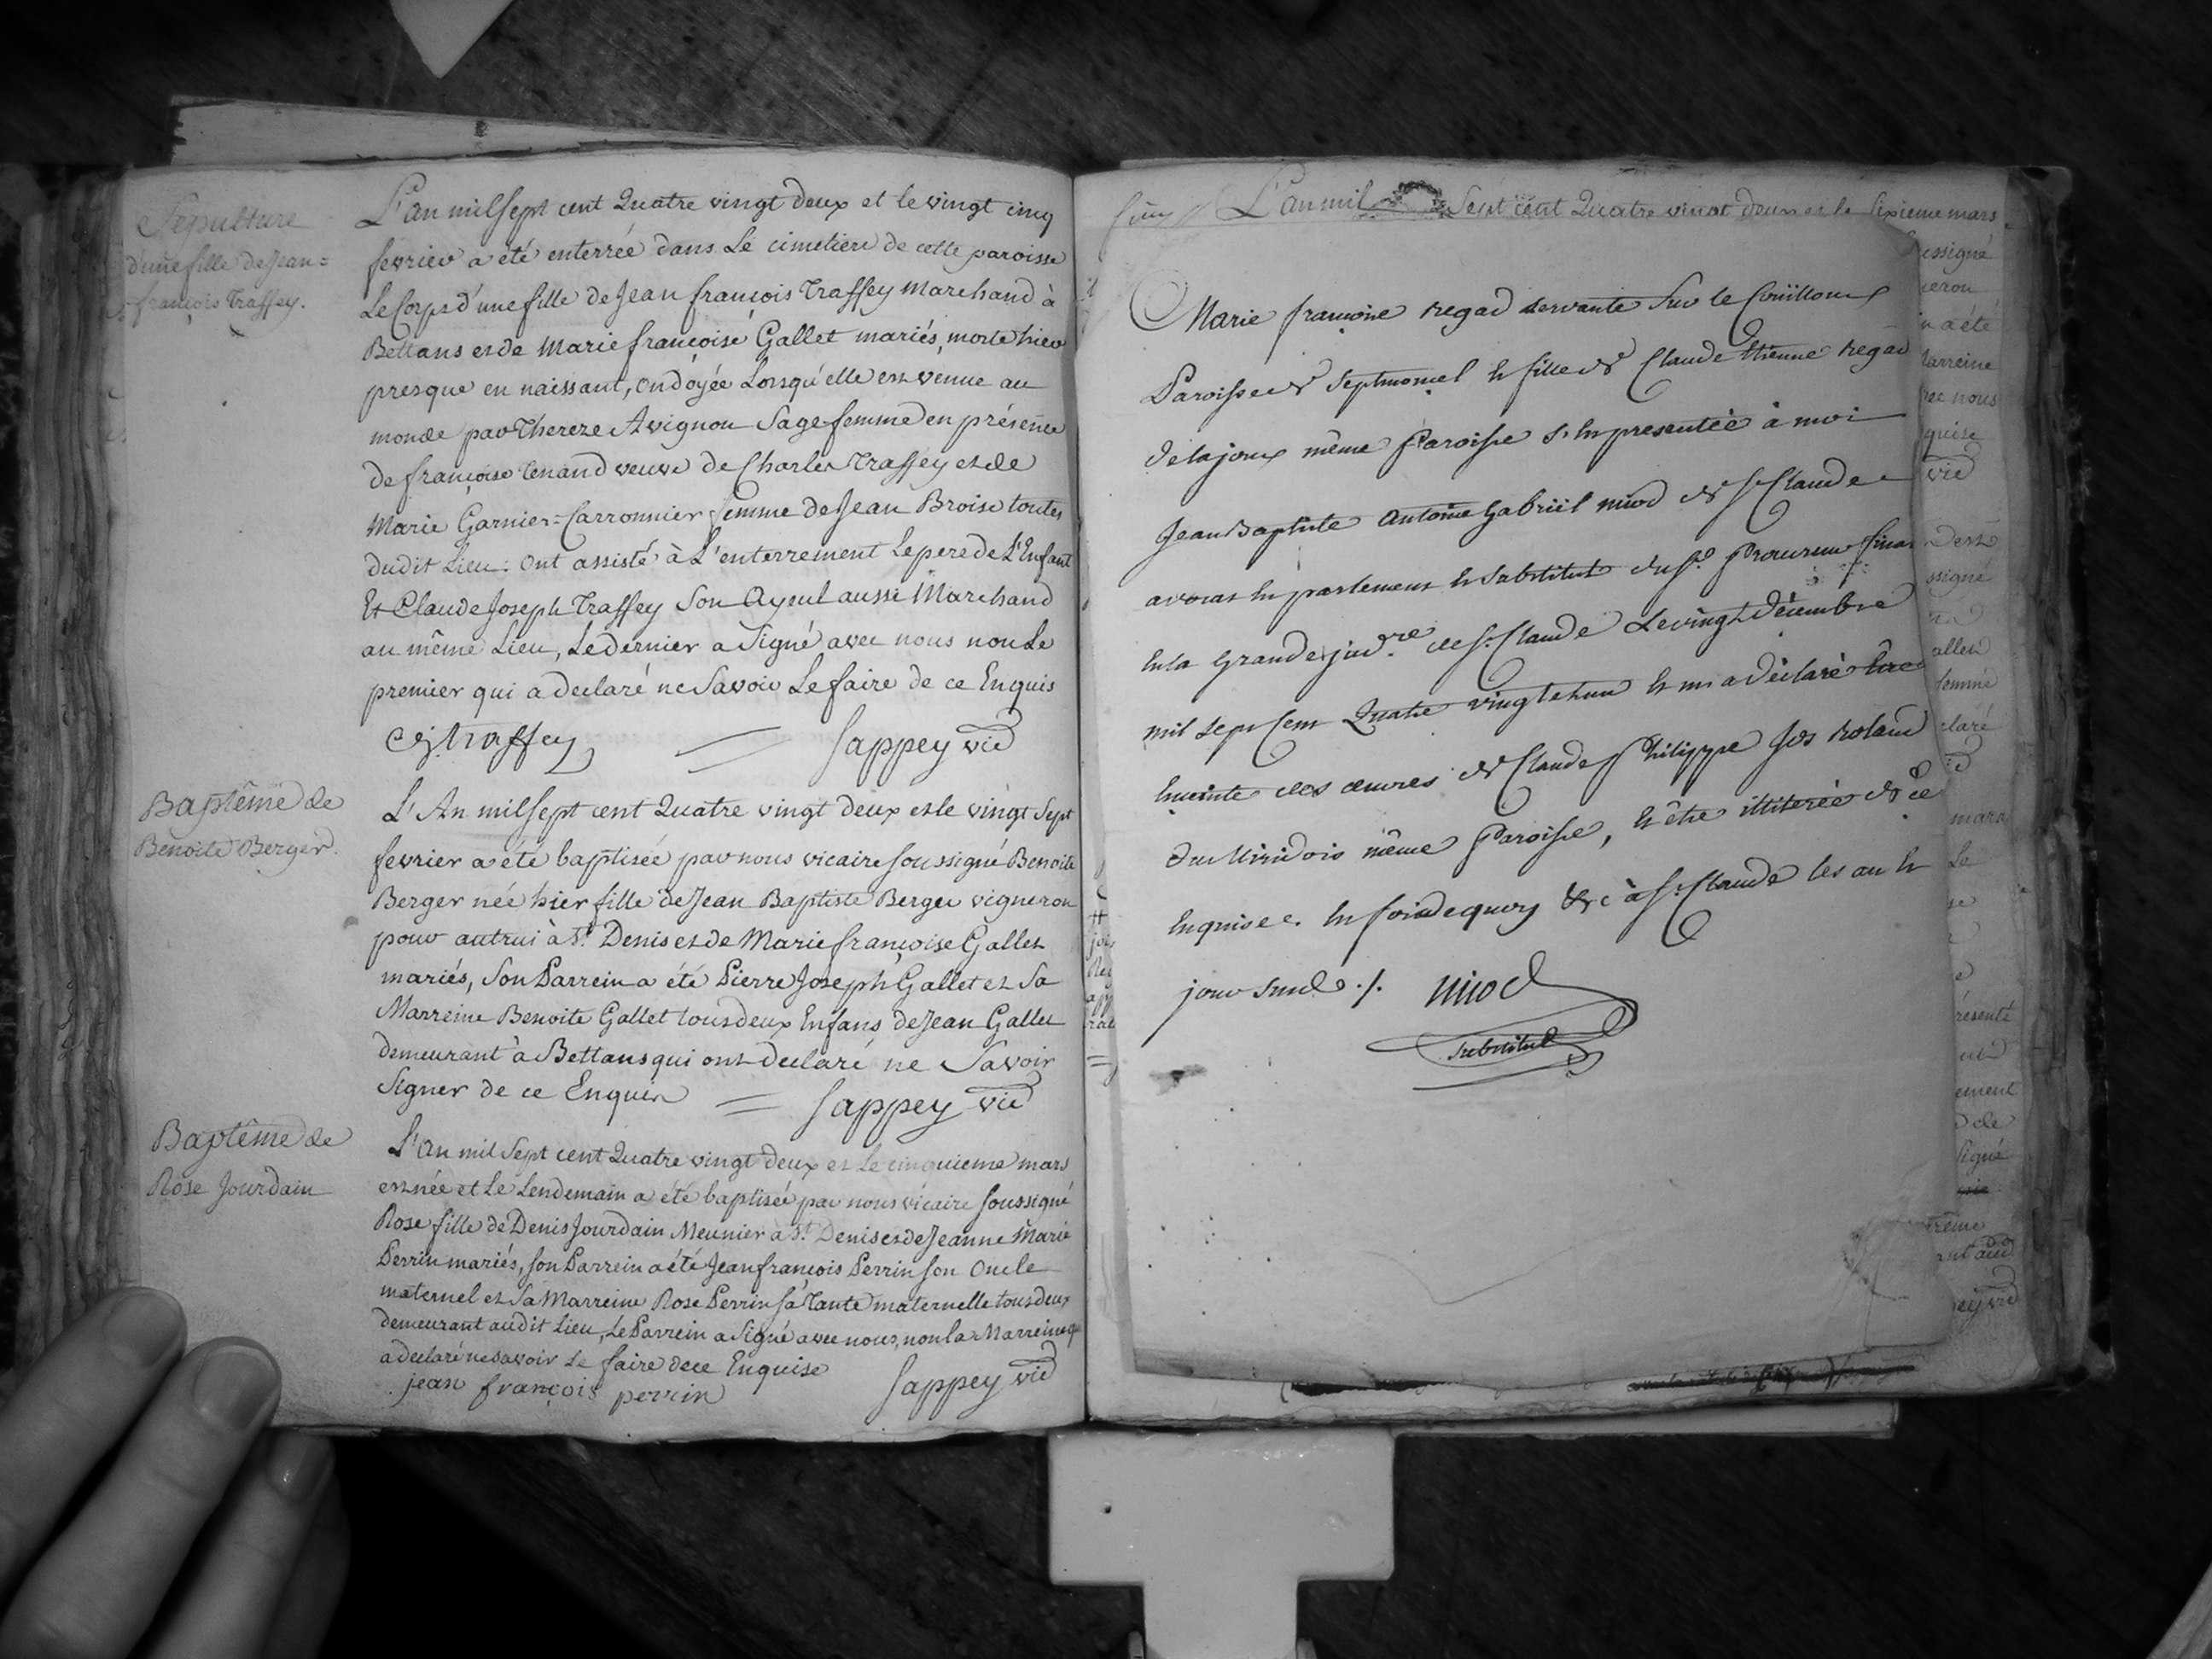 Sépulture
d'une fille de Jean=
françois Traffey.
L'an mil sept cent Quatre vingt deux et le vingt cinq
fevrier a été enterrée dans Le cimetiere de cette paroisse
Le Corps d'une fille de Jean françois Traffey Marchand à
Bettans et de Marie françoise Gallet mariés, morte hier
presque en naissant, ondoyée Lorsqu'elle est venue au
monde par Thereze Avignon Sage femme en présence
de françoise Tenand veuve de Charles Traffey et de
Marie Garnier=Carronnier femme de Jean Broise toutes
dudit Lieu: ont assisté à L'enterrement Le pere de L'Enfant
Et Claude Joseph Traffey Son Ayeul aussi Marchand
au même Lieu, Le dernier a Signé avec nous non Le
premier qui a declaré ne Savoir Le faire de ce Enquis
cj traffey Sappey vic
Baptême de
Benoite Berger.
L'An mil sept cent Quatre vingt deux et le vingt Sept
fevrier a été baptisée par nous vicaire soussigné Benoite
Berger née hier fille de Jean Baptiste Berger vigneron
pour autrui à St. Denis et de Marie françoise Gallet
mariés, Son Parrein a été Pierre Joseph Gallet et Sa
Marreine Benoite Gallet tous deux Enfans de Jean Gallet
demeurant à Bettans qui ont declaré ne Savoir
Signer de ce Enquis = Sappey vic
Baptême de
Rose Jourdain
L'An mil Sept cent Quatre vingt deux et Le cinquieme mars
est née et Le Lendemain a été baptisée par nous vicaire soussigné
Rose fille de Denis Jourdain Meunier à St. Denis et de Jeanne Marie
Perrin mariés, son Parrein a été Jean françois Perrin son Oncle
maternel et Sa Marreine Rose Perrin sa Tante maternelle tous deux
demeurant audit Lieu, Le Parrein a Signé avec nous, non la Marreine qui
a declaré ne savoir Le faire de ce Enquise
jean françois perrin Sappey vic
L'an mil Sept cent Quatre vingt deux et le Sixieme mars
Marie francoise regad servante sur le
Paroisse de Septmoncel et fille de Claude Etienne regad
de lajoux même Paroisse s'est presentée à moi
Jean Baptiste Antoine Gabriël niod de St Claude
avocat en parlement et substitut du Sr. Procureur fiscal
en la Grande jud.re de St Claude Le vingt décembre
mil sept cent Quatre vingt et un et m'a déclaré être
enceinte des œuvres de Claude Philippe Jos roland
du même Paroisse, et être illiterée de ce
enquise. en foi de quoy &c à St Claude les an et
jour susd. ./. niod
substitut